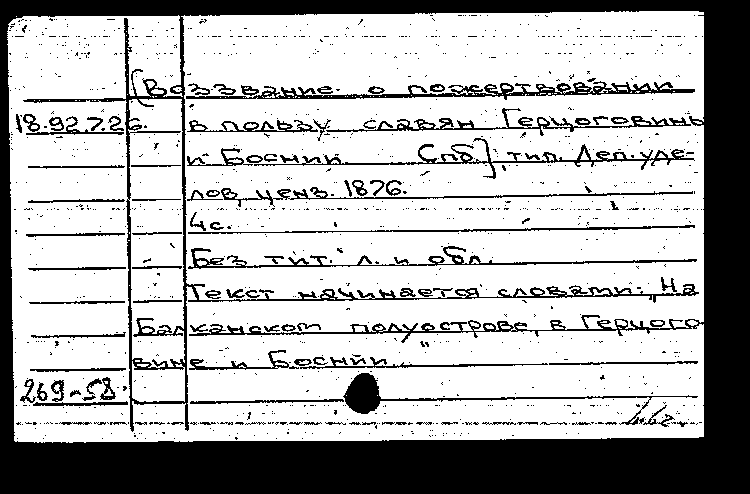 [Воззвание о пожертвовании
18.92.7.26. в пользу славян Герцоговины
и Боснии Спб], тип. Деп. уде-
лов, ценз. 1876.
4с.
Без тит. л. и обл.
Текст начинается словами: „На
Балканском полуострове, в Герцого-
вине и Боснии..."
269-58.